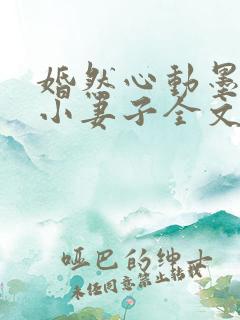 婚然心動墨
小妻子全文
哑巴的绅士
未经同意禁止转载